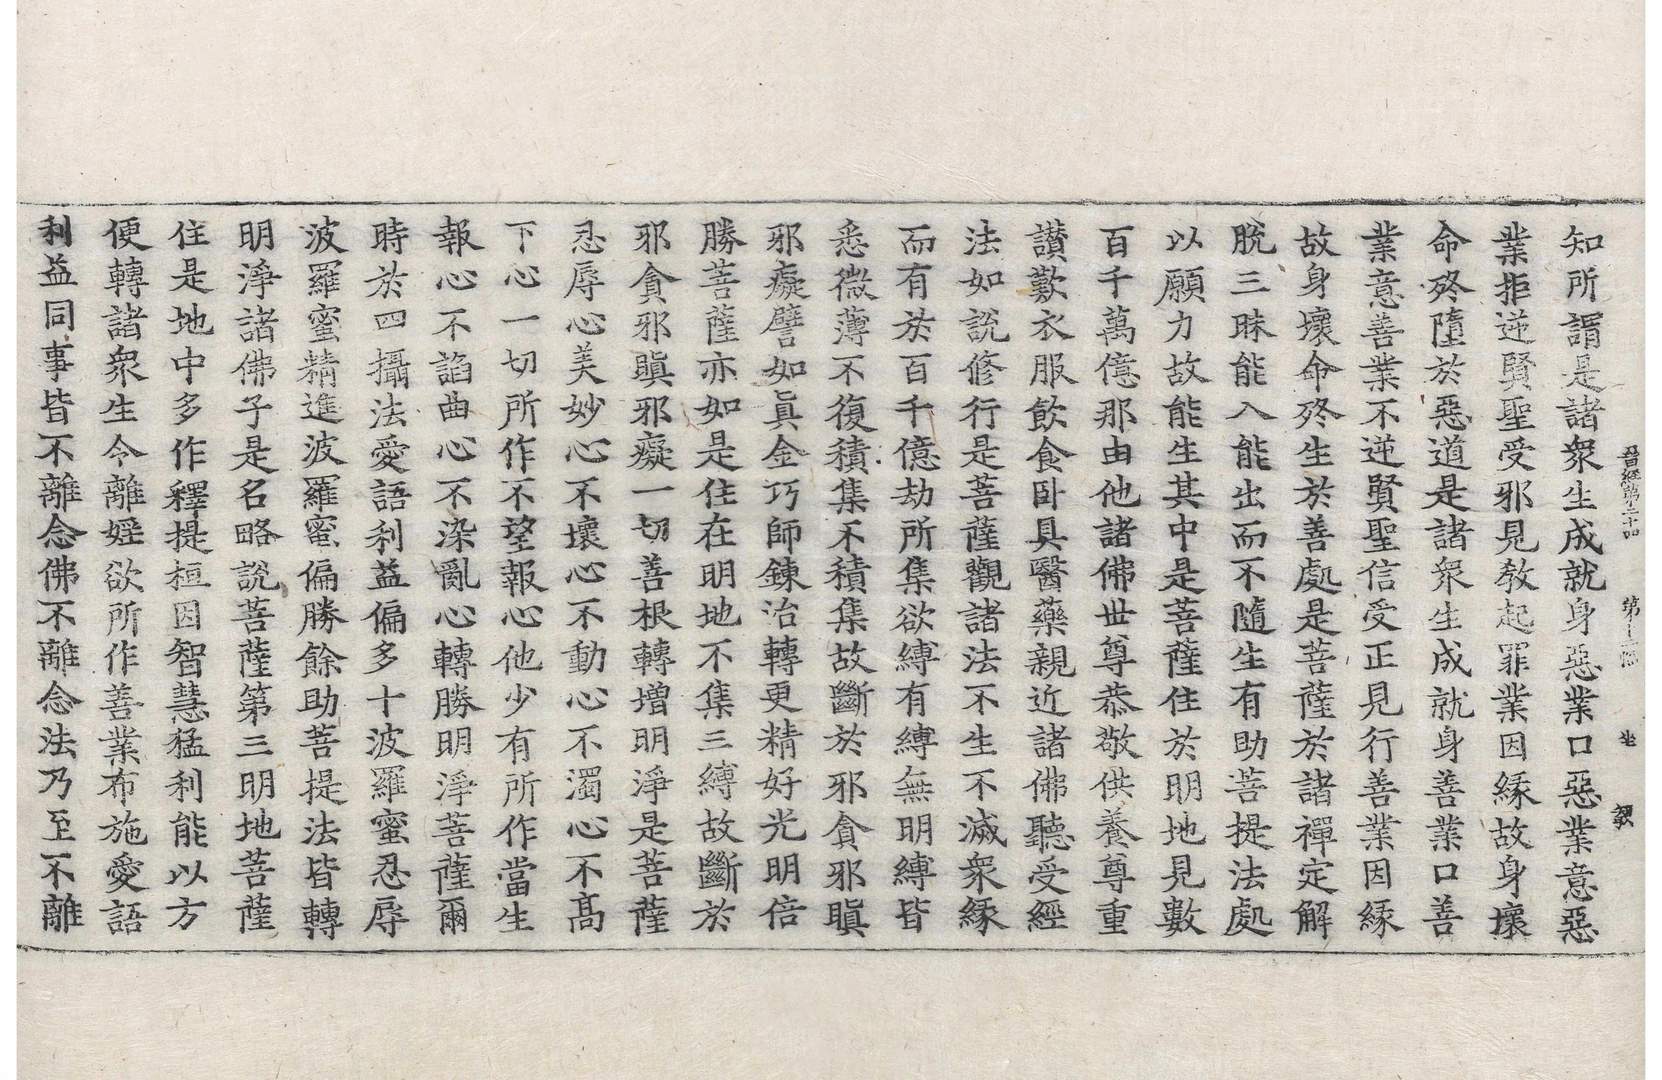 晉經第二十四 第十二張 坐 毅
知所謂是諸衆生成就身惡業口惡業意惡
業拒逆賢聖受邪見教起罪業因緣故身壞
命終墮於惡道是諸衆生成就身善業口善
業意善業不逆賢聖信受正見行善業因緣
故身壞命終生於善處是菩薩於諸禪定解
脫三昧能入能出而不隨生有助菩提法處
以願力故能生其中是菩薩住於明地見數
百千萬億那由他諸佛世尊恭敬供養尊重
讃歎衣服飲食臥具醫藥親近諸佛聽受經
法如說修行是菩薩觀諸法不生不滅衆緣
而有於百千億劫所集欲縛有縛無明縛皆
悉微薄不復積集不積集故斷於邪貪邪瞋
邪癡譬如眞金巧師鍊治轉更精好光明倍
勝菩薩亦如是住在明地不集三縛故斷於
邪貪邪瞋邪癡一切善根轉增明淨是菩薩
忍辱心美妙心不壞心不動心不濁心不高
下心一切所作不望報心他少有所作當生
報心不諂曲心不染亂心轉勝明淨菩薩爾
時於四攝法愛語利益偏多十波羅蜜忍辱
波羅蜜精進波羅蜜偏勝餘助菩提法皆轉
明淨諸佛子是名略說菩薩第三明地菩薩
住是地中多作釋提桓因智慧猛利能以方
便轉諸衆生令離婬欲所作善業布施愛語
利益同事皆不離念佛不離念法乃至不離